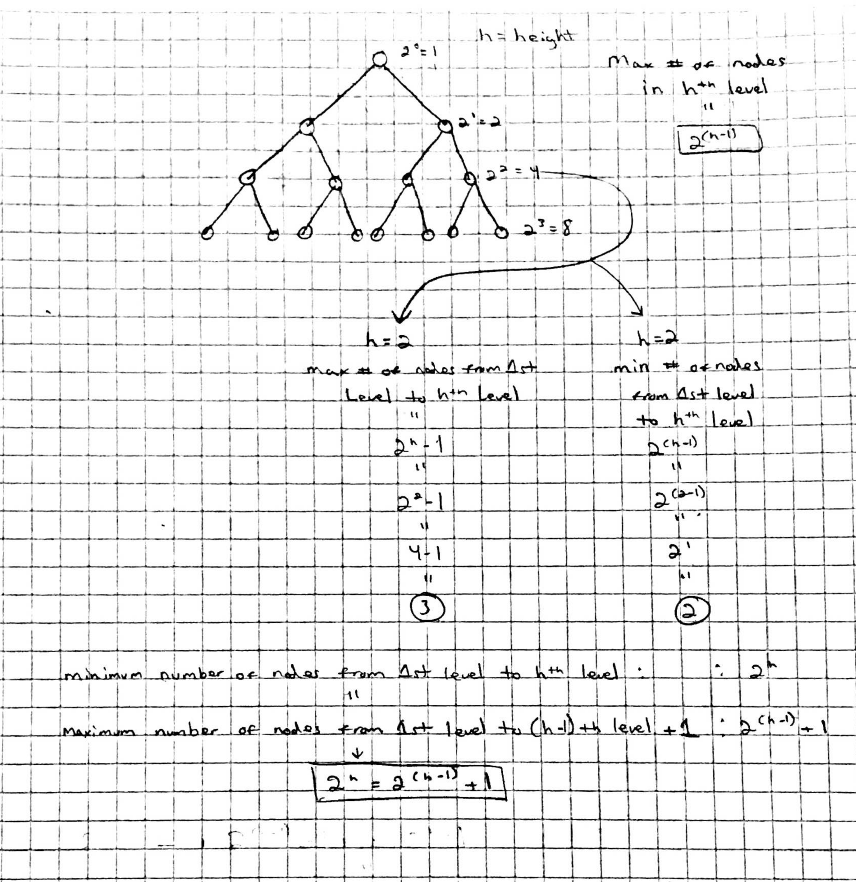 2⁰=1
h = height
Max # of nodes
in hᵗʰ level
"
2^(h-1)
2¹=2
2²=4
2³=8
h=2
max # of nodes from 1st
Level to hᵗʰ Level
"
2ʰ-1
"
2²-1
"
4-1
"
3
h=2
min # of nodes
from 1st level
to hᵗʰ level
2^(h-1)
"
2^(2-1)
"
2¹
"
2
minimum number of nodes from 1st level to hᵗʰ level : : 2ʰ
"
Maximum number of nodes from 1st level to (h-1)th level + 1 : 2^(h-1) + 1
2ʰ = 2^(h-1) + 1